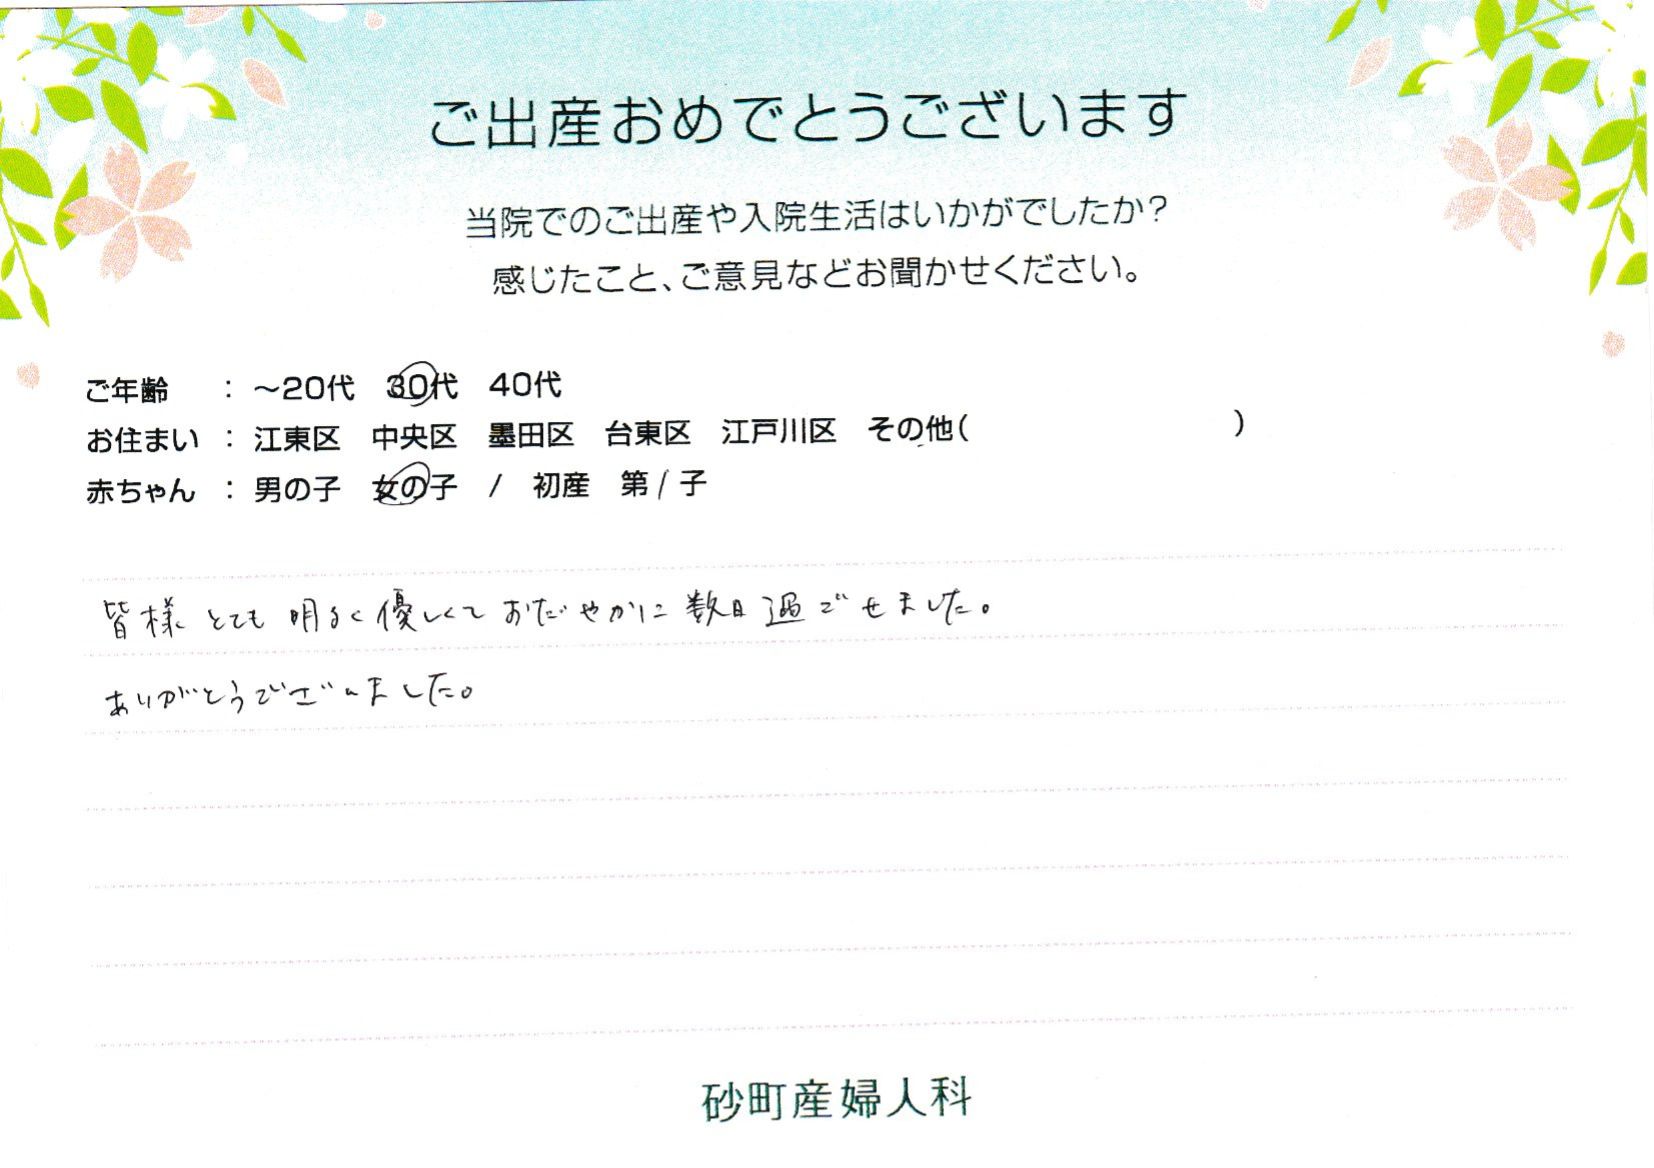 ご出産おめでとうございます
当院でのご出産や入院生活はいかがでしたか?
感じたこと、ご意見などお聞かせください。
ご年齢 : ～20代 30代 40代
お住まい : 江東区 中央区 墨田区 台東区 江戸川区 その他( )
赤ちゃん : 男の子 女の子 / 初産 第1子
皆様とても明るく優しくておだやかに数日過ごせました。
ありがとうございました。
砂町産婦人科